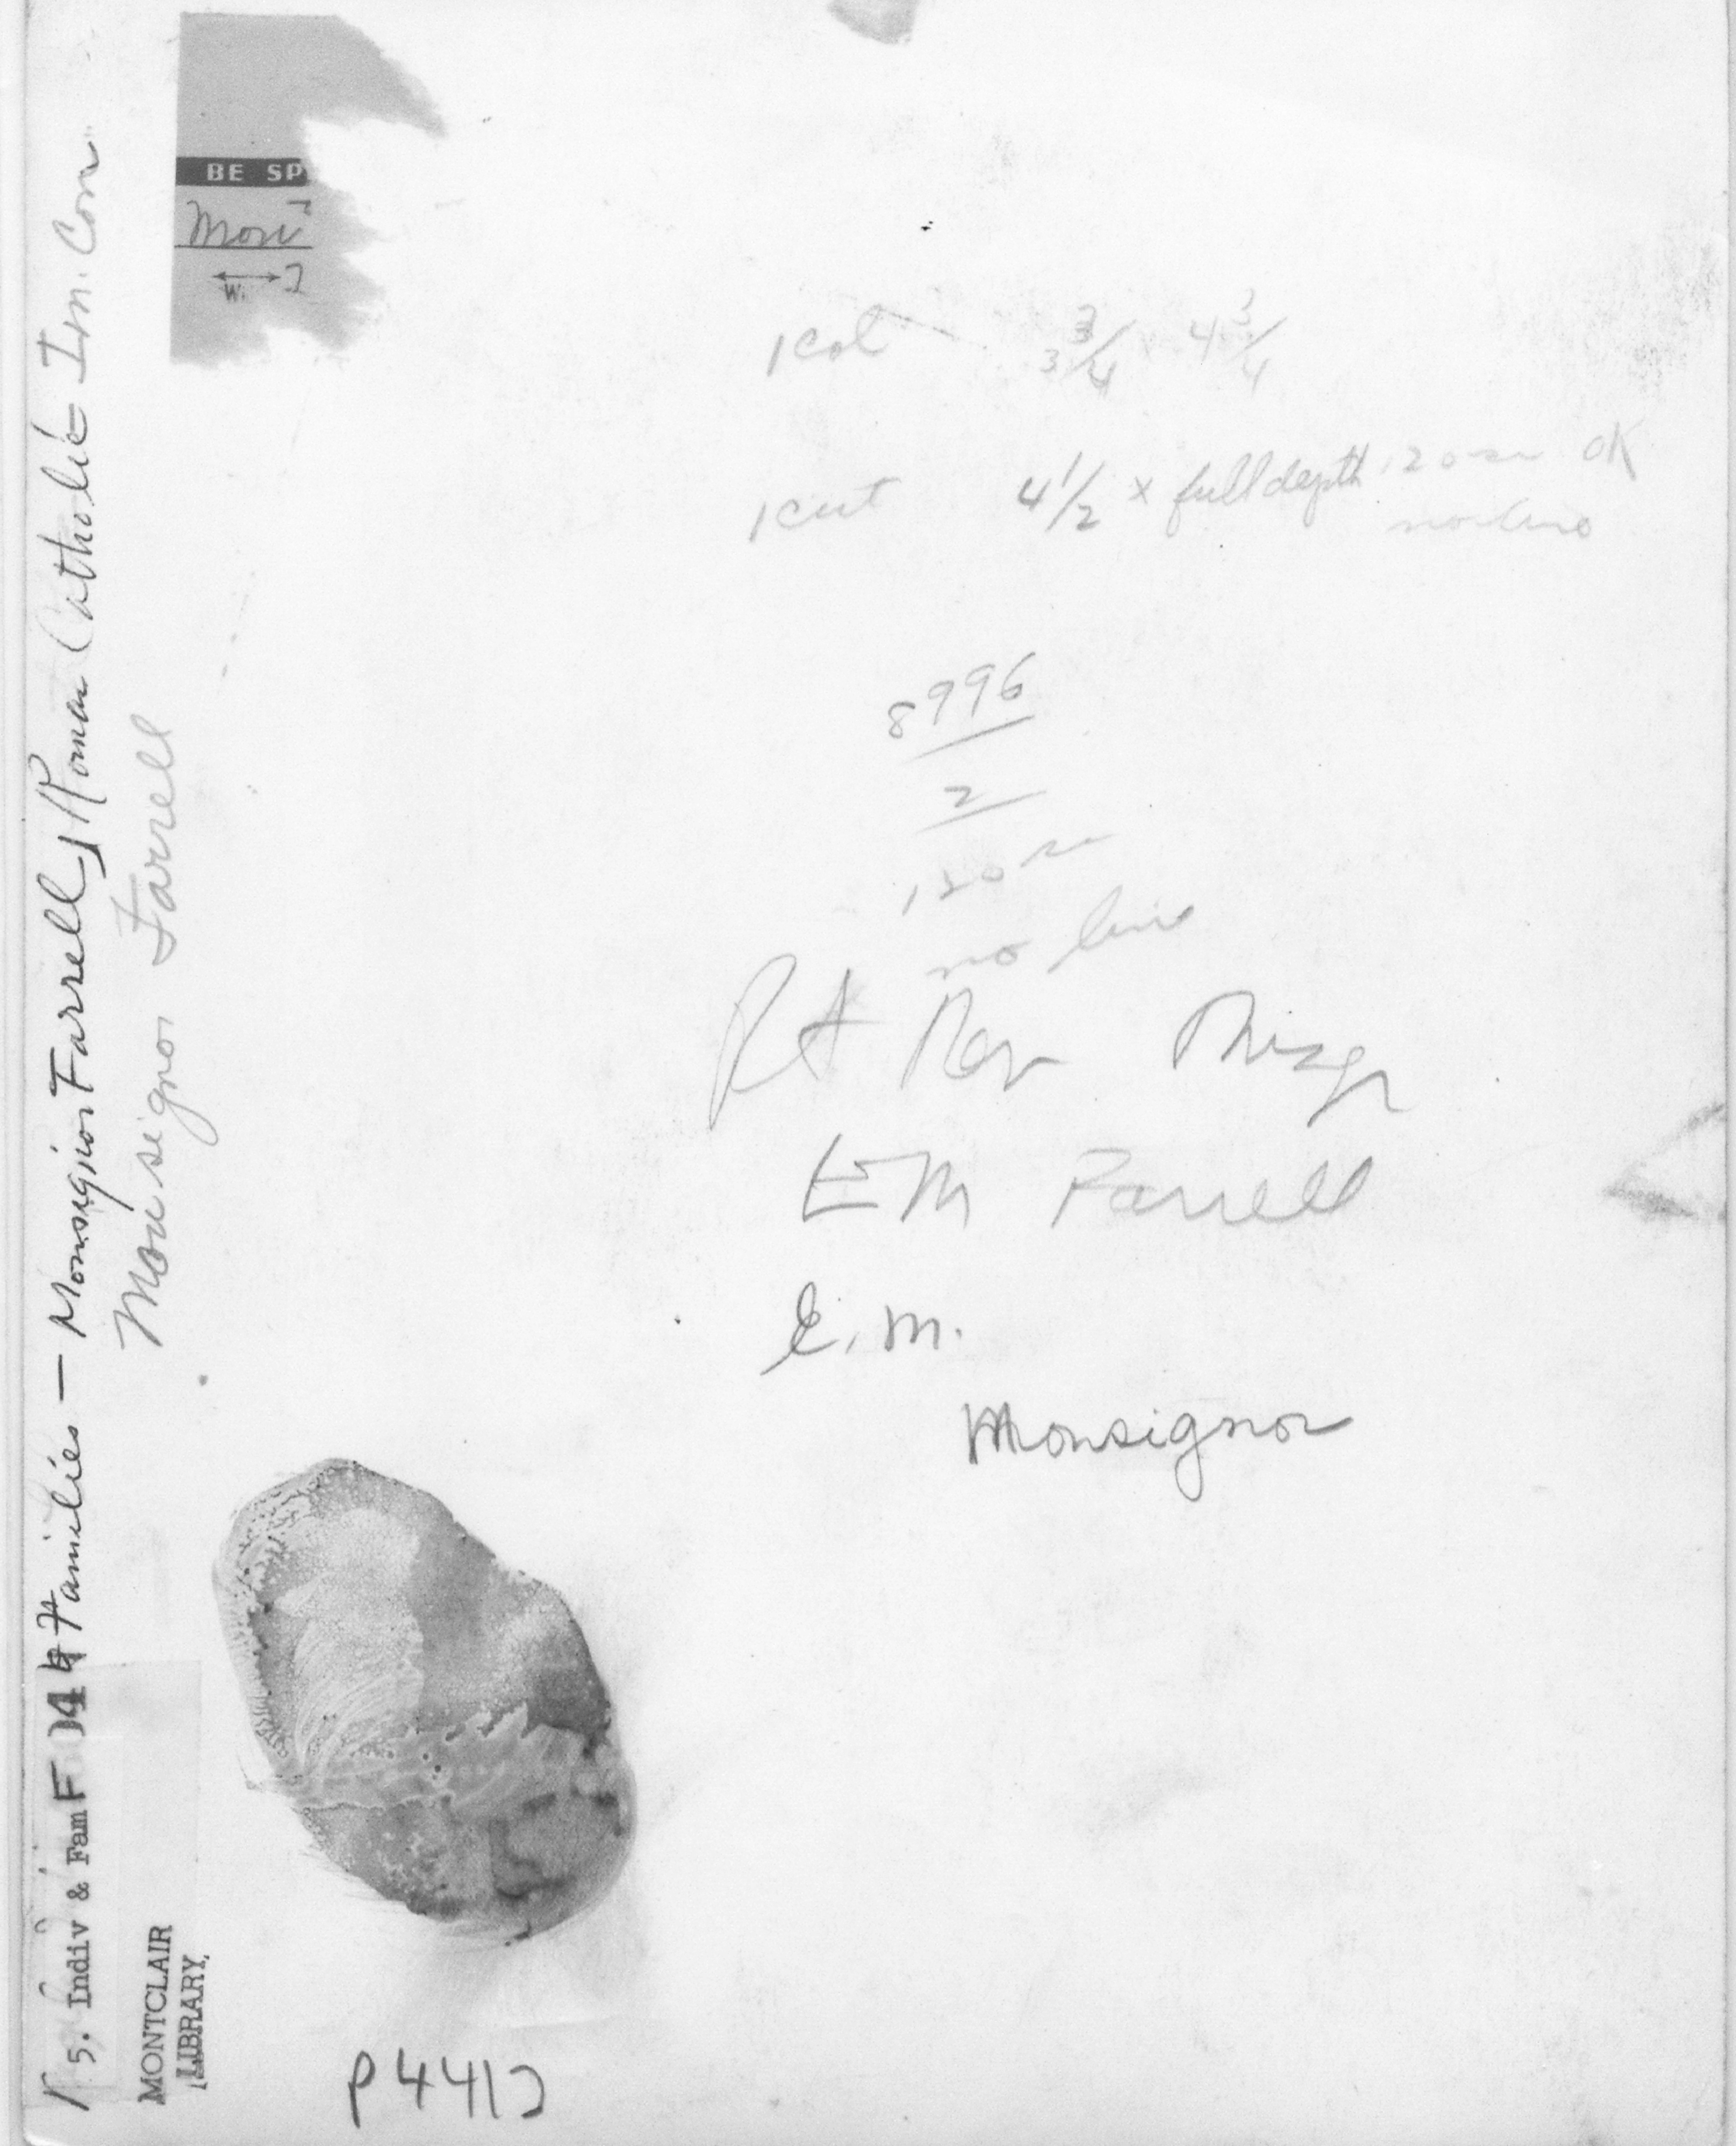 BE SP
Mon
W
1 col 3 3/4 x 4 3/4
1 cut 4 1/2 x full depth 120 OK
no line
8996
2
120
no line
Rt Rev Msgr
EM Farrell
E. M.
Monsignor
5. Indiv & Fam F Families — Monsignor Farrell, Roman Catholic Im. Con
Monsignor Farrell
MONTCLAIR
LIBRARY
P441